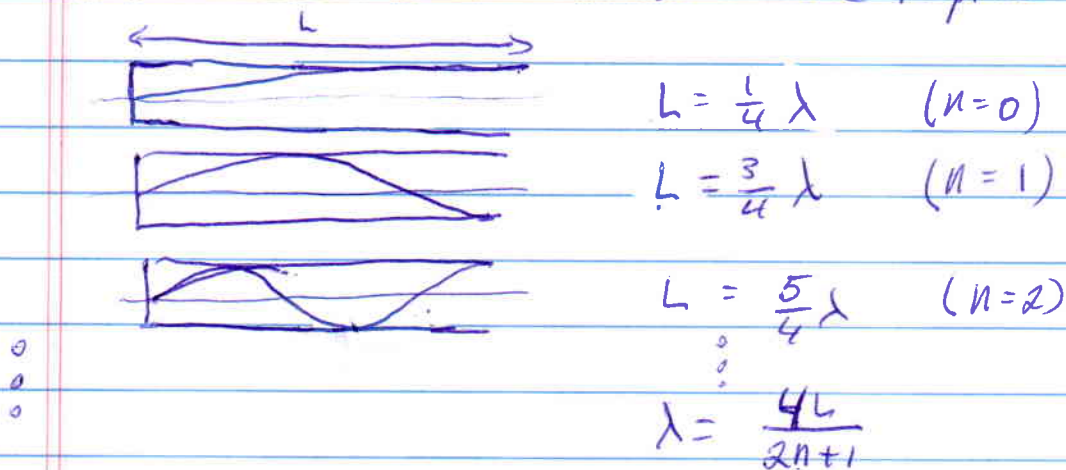 L
L = 1/4 λ (n=0)
L = 3/4 λ (n = 1)
L = 5/4 λ (n=2)
⋮
λ = 4L/(2n+1)